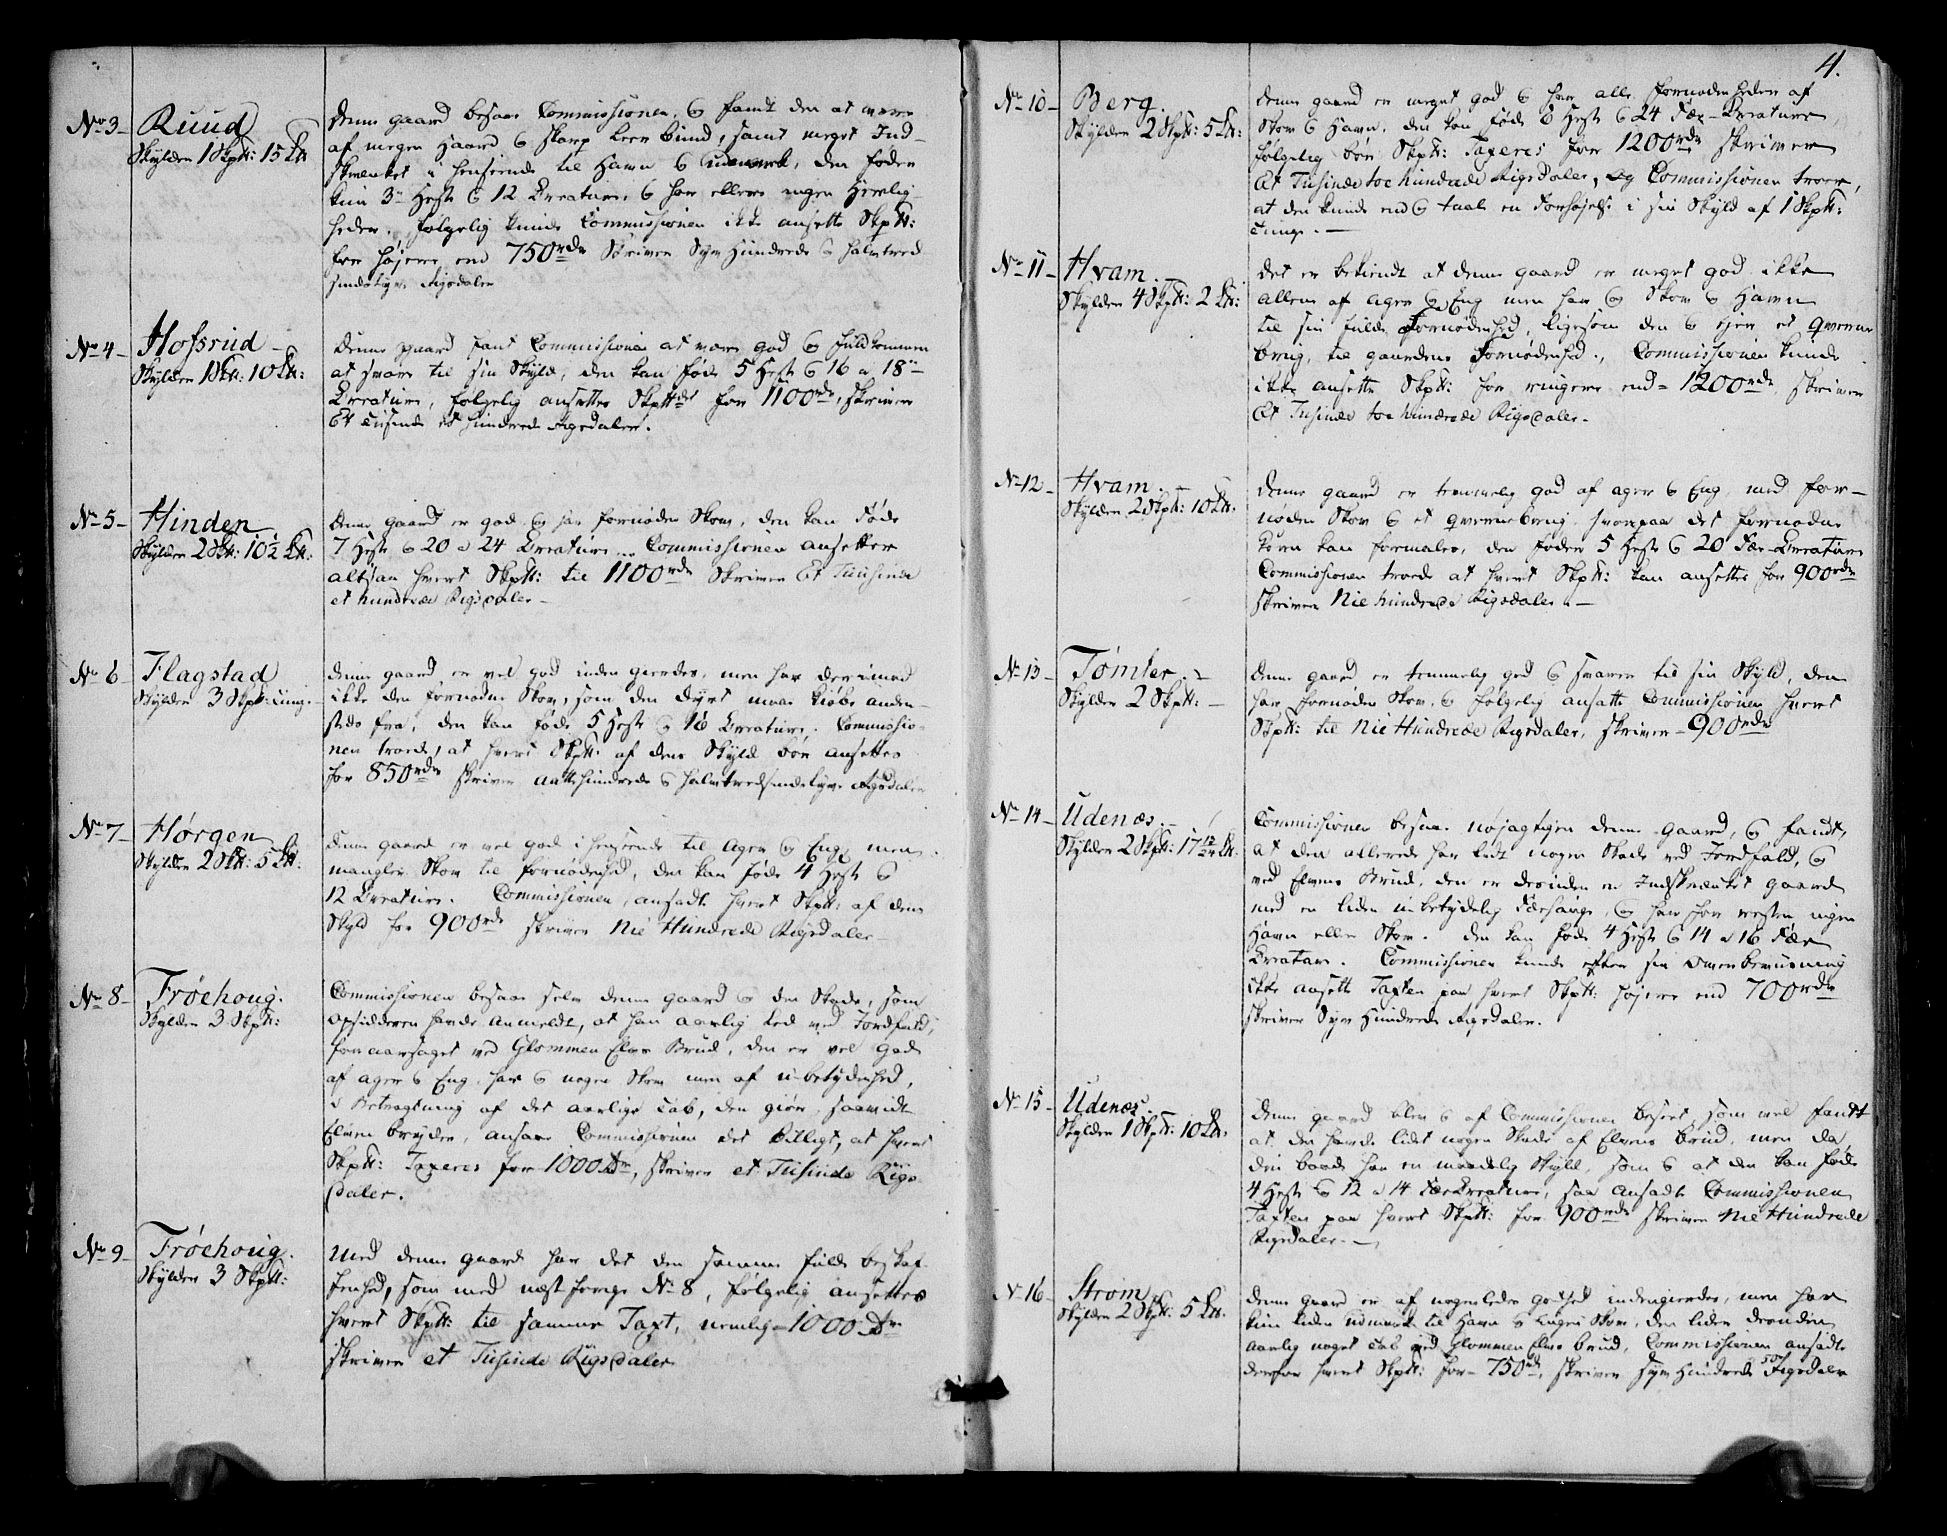 No 3 Ruud
Skylder 1 Skpt: 15 Lt
Denne gaard besaae Commissionen, og fandt den at være
af megen haard og skarp Leer bund, samt meget Ind-
skrenket i henseende til Havn og udmark, den føder
kun 3 Heste og 12 Creature, og har ellers ingen Herlig-
heder. følgelig kunde Commissionen ikke ansette Skpt:
for højere end 750 rdr Skriver Syv Hundrede og halvtred
sindstyve Rigsdaler
No 4 Hofsrud
Skylder 1 Skt: 10 Lt:
Denne gaard fant Commissionen at være god og fuldkommen
at svare til sin Skyld, den kan føde 5 Heste og 16 a 18
Creature, følgelig ansettes Skpttet for 1100 rdr, skriver
Et tusinde et hundrede Rigsdaler.
No 5 Hinden
Skylder 2 Skt: 10 1/2 Lt:
Denne gaard er god og har fornøden Skov, den kan føde
7 Heste og 20 a 24 Creature. Commissionen ansetter
altsaa hvert Skpt: til 1100 rdr Skriver Et Tusinde
et hundrede Rigsdaler
No 6 Flagstad
Skylder 3 Skpt: tunge
Denne gaard er vel god inden gierdes, men har derimod
ikke den fornødne Skov, som den dyrt maae kiøbe anden-
steds fra, den kan føde 5 Heste og 16 Creature. Commissio-
nen troede, at hvert Skpt: af dens Skyld bør ansettes
for 850 rdr skriver aatte hundrede og halvtredsindstyve Rigsdaler
No 7 Hørgen
Skylder 2 Skt: 5 Lt:
Denne gaard er vel god i henseende til Ager og Eng, men
mangler Skov til fornødenhed, den kan føde 4 Heste og
12 Creature. Commissionen, ansadte hvert Skpt: af dens
Skyld for 900 rdr skriver Nie Hundrede Rigsdaler
No 8 Frøehoug.
Skylder 3 Skpt:
Commissionen besaae selv denne gaard og den Skade, som
Opsidderen havde anmeldt, at han aarlig leed ved Jordfald,
foraarsaget ved Glommen Elvs Brud, den er vel god
af ager og Eng, har og nogen Skov men af u-betydenhed,
i Betragtning af det aarlige tab, den giør, saavidt
Elven bryder, ansaae Commissionen det billigt, at hvert
Skpt: Taxeres for 1000 Dr, skriver et Tusinde Rigs-
daler.
No 9 Frøehoug.
Skylder 3 Skpt:
Med denne gaard har det den samme fulde beskaf-
fenhed, som med næst forrige No 8, følgelig ansettes
hvert Skpt: til samme Taxt, nemlig 1000 Dr
skriver et Tusinde Rigsdaler
4.
No 10 Berg.
Skylder 2 Skpt: 5 Lt:
Denne gaard er meget god og har alle fornødenheder af
Skov og Havn, den kan føde 6 Heste og 24 Fæe-Creature
følgelig bør Skpt: Taxeres for 1200 rdr skriver
Et Tusinde toe hundrede Rigsdaler, og Commissionen troer,
at den kunde end og taale en Forhøjelse i sin Skyld af 1 Skpt:
tunge.
No 11 Hvam.
Skylder 4 Skpt: 2 Lt:
Det er bekiendt at denne gaard er meget god ikke
allene af ager og Eng men har og Skov og Havn
til sin fulde Fornødenhed, ligesom den og hver et qværne
brug, til gaardens Fornødenhed., Commissionen kunde
ikke ansette Skpt: for ringere end 1200 rdr, skriver
Et Tusinde toe hundrede Rigsdaler.
No 12 Hvam.
Skylder 2 Skpt: 10 Lt.
Denne gaard er temmelig god af ager og Eng, med for-
nøden Skov og et qværnebrug, hvorpaa det fornødne
korn kan formales, den føder 5 Heste og 20 Fæe-Creature
Commissionen troede at hvert Skpt: kan ansettes for 900 rdr
skriver Nie hundrede Rigsdaler.
No 13 Tømler.
Skylder 2 Skpt:
Denne gaard er temmelig god og svarer til sin Skyld, den
har fornøden Skov, og følgelig ansatte Commissionen hvert
Skpt: til Nie Hundrede Rigsdaler, skriver 900 rdr
No 14 Udenæs.
Skylder 2 Skpt: 17 12/24 Lt.
Commissionen besaae nøjagtigen denne gaard, og fandt,
at den allerede har lidt nogen Skade ved Jordfald, og
ved Elvens Brud, den er desuden en Indskrænket gaard
med en liden u-betydelig Fæehauge, og har for resten ingen
Havn eller Skov. Den kan føde 4 Heste og 14 a 16 Fæe
Creature. Commissionen kunde efter sin overbeviisning
ikke ansette Taxten paa hvert Skpt: højere end 700 rdr
skriver Syv Hundrede Rigsdaler.
No 15 Udenæs.
Skylder 1 Skpt: 10 Lt.
Denne gaard blev og af Commissionen beseet, som vel fandt
at den havde lidet nogen Skade af Elvens brud, men da
den baade har en maadelig Skyld, som og at den kan føde
4 Heste og 12 a 14 Fæe Creature, saa ansadte Commissionen
Taxten paa hvert Skpt: for 900 rdr skriver Nie Hundrede
Rigsdaler.
No 16 Strøm.
Skylder 2 Skpt: 5 Lt.
Denne gaard er af nogenledes godhed indengierdes, men har
kun liden udmark til Havn og ingen Skov, den lider desuden
aarlig noget tab ved Glommen Elvs brud, Commissionen ansadte
derfor hvert Skpt: for 750 rdr, skriver syv Hundrede 50 Rigsdaler